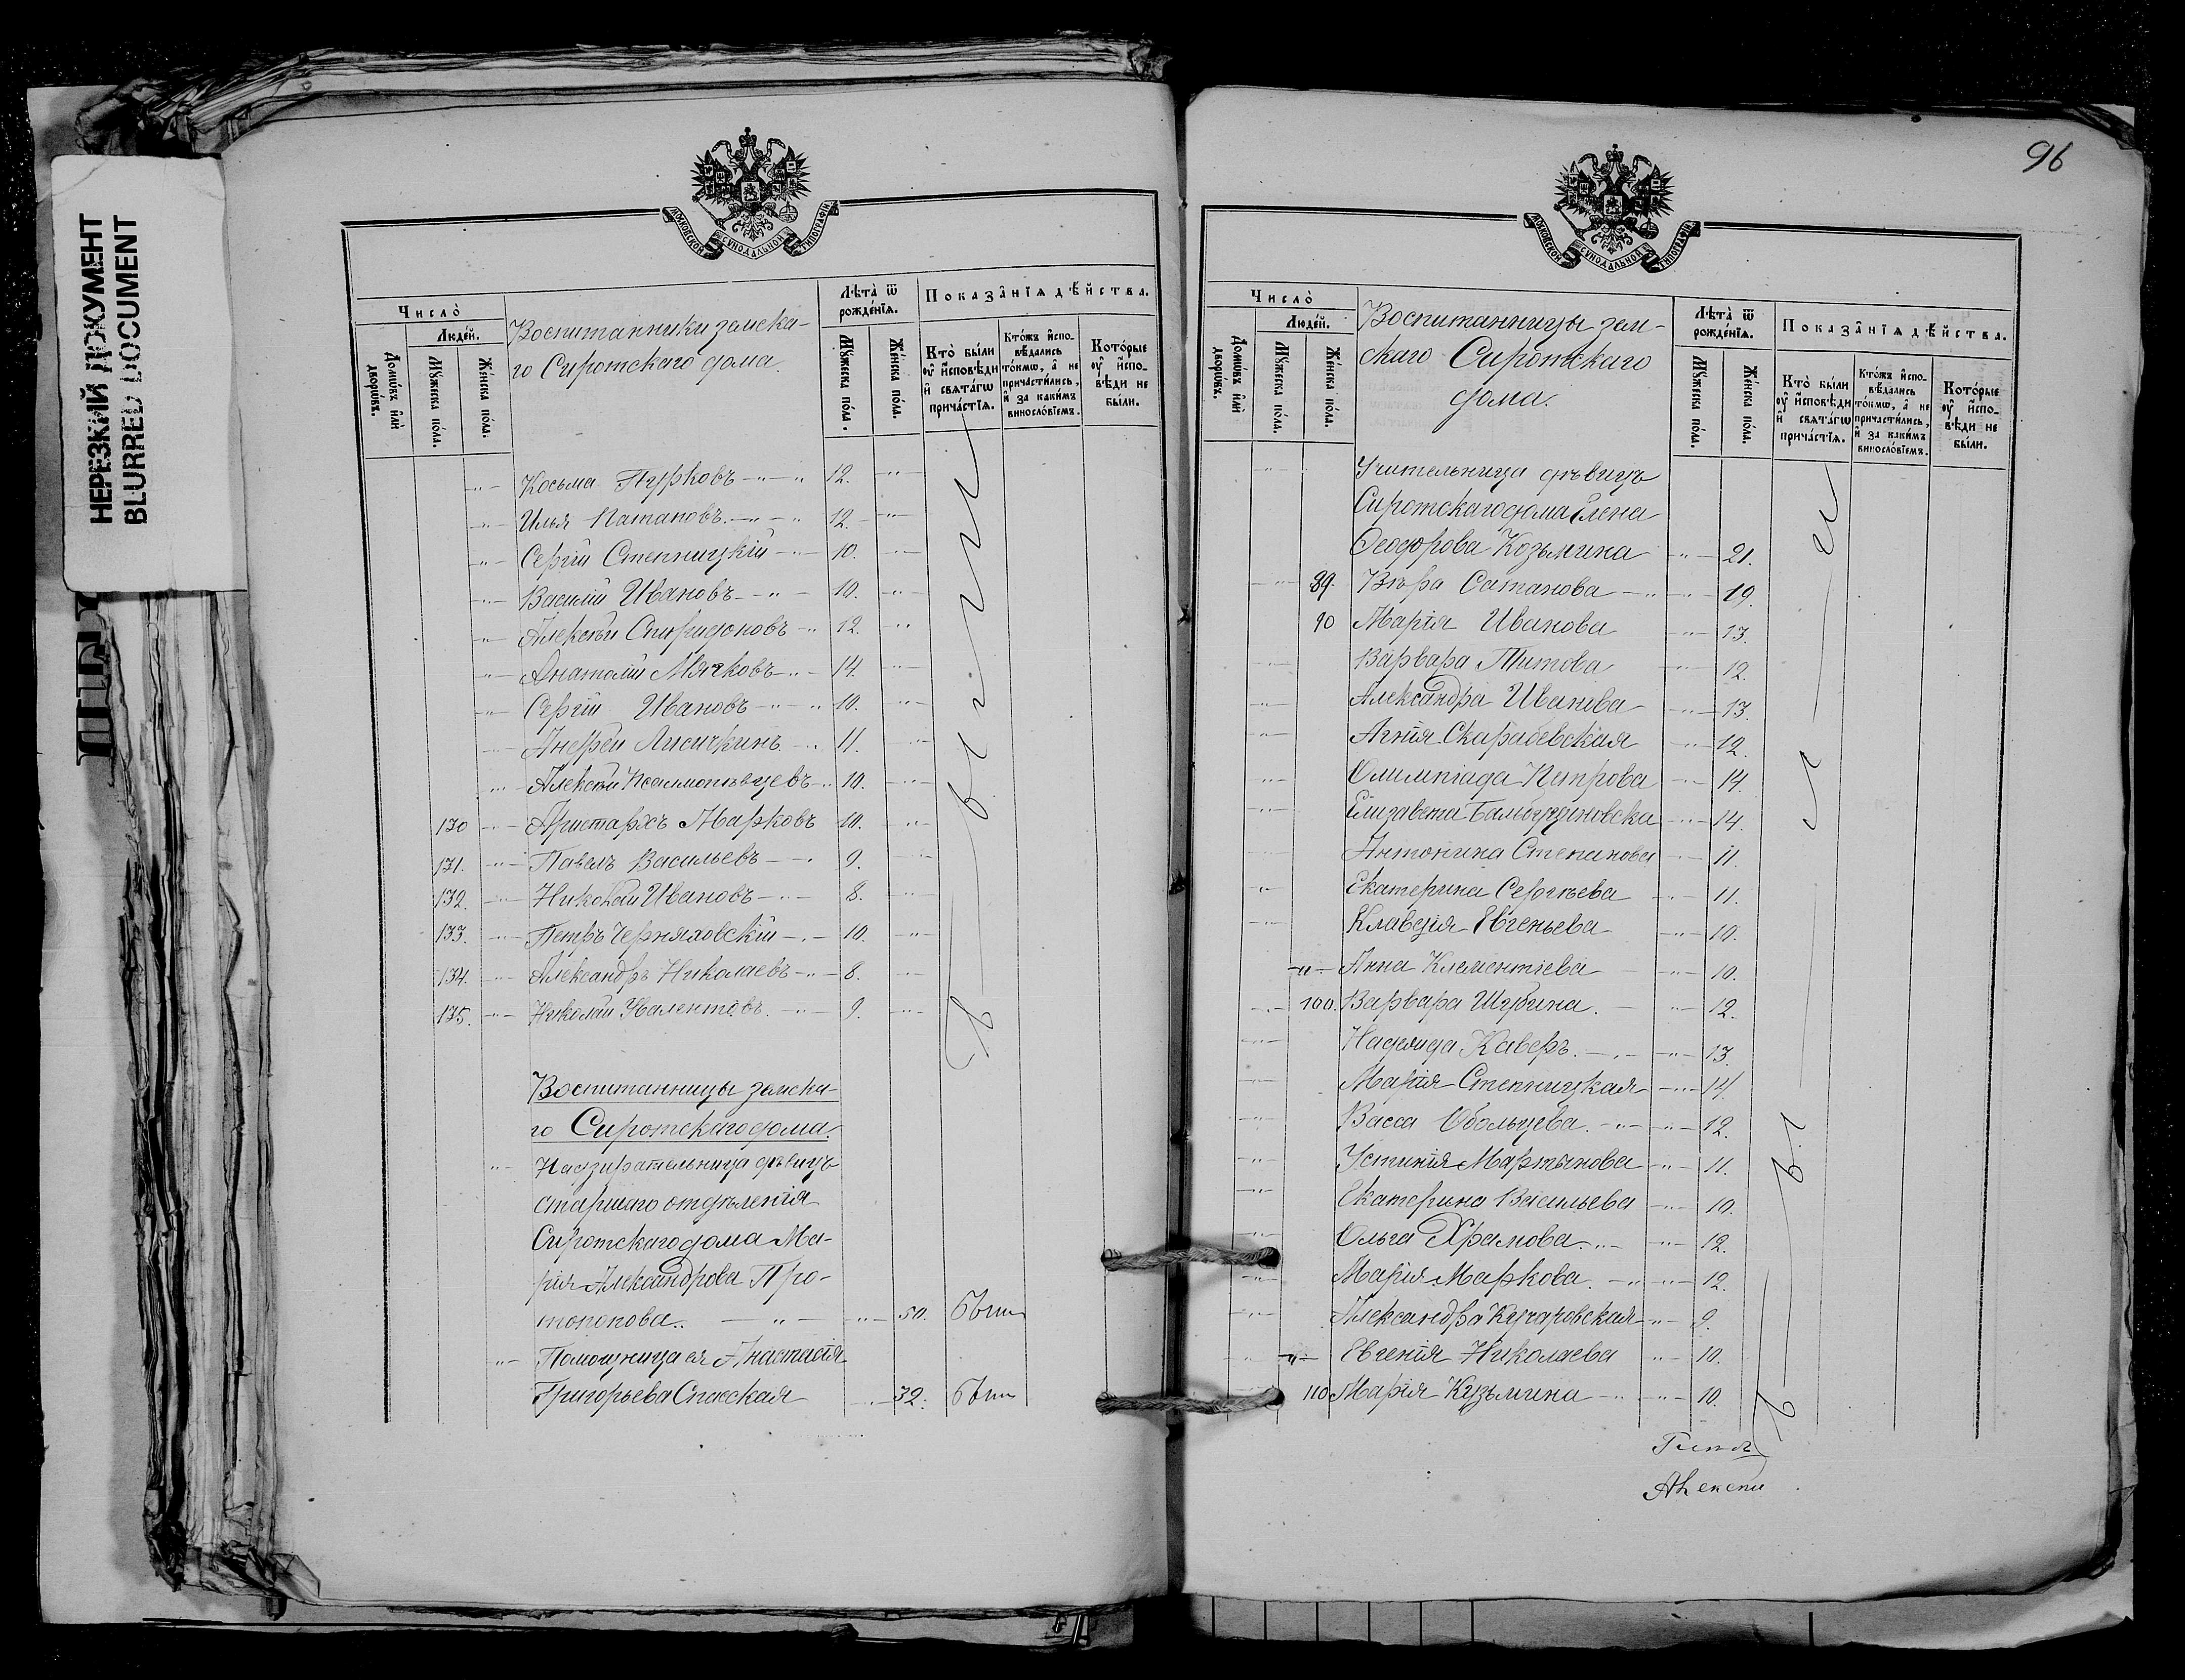 НЕРЕЗКИЙ ДОКУМЕНТ
BLURRED DOCUMENT
МОСКОВСКОЙ СѴНОДАЛЬНОЙ ТИПОГРАФІИ
Число̀
Людей.
Домѡвъ и҆лѝ дворѡвъ.
Мꙋжеска по́ла.
Же́нска по́ла.
Воспитанники земска-
го Сиротскаго дома.
Лѣта̀ ѿ рожде́нїѧ.
Мꙋжеска по́ла.
Же́нска по́ла.
Показа̑нїѧ дѣ́йства.
Кто̀ бы́ли ᲂу҆ и҆сповѣди и҆ свѧта́гѡ прича́стїѧ.
Кто́жъ и҆спо-вѣдались то́кмѡ, а҆ не причасти́лись, и҆ за каки́мъ винослóвїемъ.
Кото́рые ᲂу҆ и҆спо-вѣди не бы́ли.
Косьма Пурковъ 12.
Илья Потаповъ 12.
Сергій Степницкій 10.
Василій Ивановъ 10.
Алексѣй Спиридоновъ 12.
Анатолій Мячковъ 14.
Сергій Ивановъ 10.
Андрей Лисичкинъ 11.
Алексѣй Псалмопѣвцевъ 10.
130 Аристархъ Марковъ 10.
131. Павелъ Васильевъ 9.
132. Николай Ивановъ 8.
133. Петръ Черняховскій 10.
134. Александръ Николаевъ 8.
135. Николай 9.
Воспитанницы земска-
го Сиротскаго дома.
Надзирательница дѣвицъ
старшаго отдѣленія
Сиротскаго дома Ма-
рія Александрова Про-
топопова. 50. были
Помощница ея Анастасія
Григорьева Спасская 32. были
96
МОСКОВСКОЙ СѴНОДАЛЬНОЙ ТИПОГРАФІИ
Число̀
Людей.
Домѡвъ и҆лѝ дворѡвъ.
Мꙋжеска по́ла.
Же́нска по́ла.
Воспитанницы зем-
скаго Сиротскаго
дома.
Лѣта̀ ѿ рожде́нїѧ.
Мꙋжеска по́ла.
Же́нска по́ла.
Показа̑нїѧ дѣ́йства.
Кто̀ бы́ли ᲂу҆ и҆сповѣди и҆ свѧта́гѡ прича́стїѧ.
Кто́жъ и҆спо-вѣдались то́кмѡ, а҆ не причасти́лись, и҆ за каки́мъ винослóвїемъ.
Кото́рые ᲂу҆ и҆спо-вѣди не бы́ли.
Учительница дѣвицъ
Сиротскаго дома Елена
Ѳеодорова Козьмина 21.
89. Вѣра Сатанова 19.
90 Марія Иванова 13.
Варвара Титова 12.
Александра Иванова 13.
Агнія Скарабевская 12.
Олимпіада Петрова 14.
Елизавета 14.
Антонина Степанова 11.
Екатерина Сергѣева 11.
Клавдія Евгеньева 10.
Анна Клементіева 10.
100. Варвара Шубина. 12.
Надежда Каверъ. 13.
Марія Степницкая 14.
Васса Обольцева. 12.
Устинія Мартынова 11.
Екатерина Васильева 10.
Ольга Храмова. 12.
Марія Маркова. 12.
Александра 9.
Евгенія Николаева 10.
110 Марія Кузьмина 10.
были